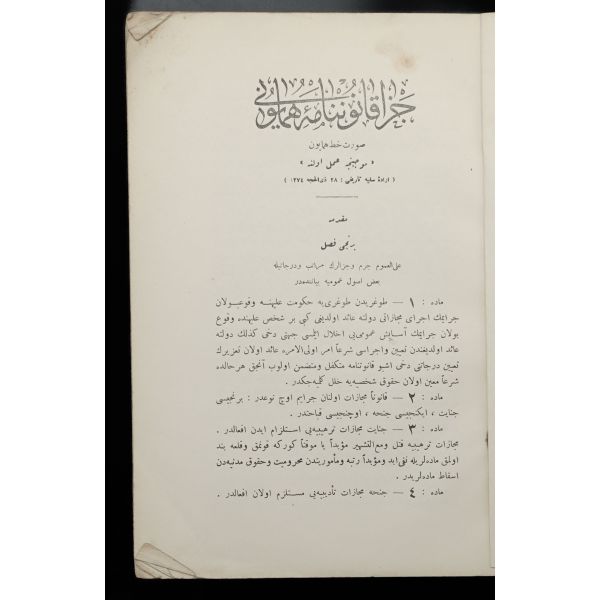 جزا قانوننامهٔ همایونی
صورت خط همایون
« موجبنجه عمل اولنه »
( ارادهٔ سنیه تاریخی : ٢٨ ذی‌الحجه ١٢٧٤ )
مقدمه
برنجی فصل
علی‌العموم جرم وجزالرك مراتب ودرجاتیله
بعض اصول عمومیه بیاننده‌در
ماده : ١ — طوغریدن طوغری‌یه حکومت علیهنده وقوعبولان
جرائمك اجرای مجازاتی دولته عائد اولدیغی کبی بر شخص علیهنده وقوع
بولان جرائمك آسایش عمومی‌یی اخلال ایلمسی جهتی دخی کذلك دولته
عائد اولدیغندن تعیین واجراسی شرعاً امر اولی‌الامره عائد اولان تعزیرك
تعیین درجاتنی دخی اشبو قانوننامه متکفل ومتضمن اولوب آنجق هر حالده
شرعاً معین اولان حقوق شخصیه‌یه خلل کلمیه‌جکدر .
ماده : ٢ — قانوناً مجازات اولنان جرایم اوچ نوعدر : برنجیسی
جنایت ، ایکنجیسی جنحه ، اوچنجیسی قباحتدر .
ماده : ٣ — جنایت مجازات ترهیبیه‌یی استلزام ایدن افعالدر .
مجازات ترهیبیه قتل ومع‌التشهیر مؤبداً یا موقتاً کورکه قونمق وقلعه بند
اولمق ماده‌لریله نفی ابد ومؤبداً رتبه ومأموریتدن محرومیت وحقوق مدنیه‌دن
اسقاط ماده‌لریدر .
ماده : ٤ — جنحه مجازات تأدیبیه‌یی مستلزم اولان افعالدر .